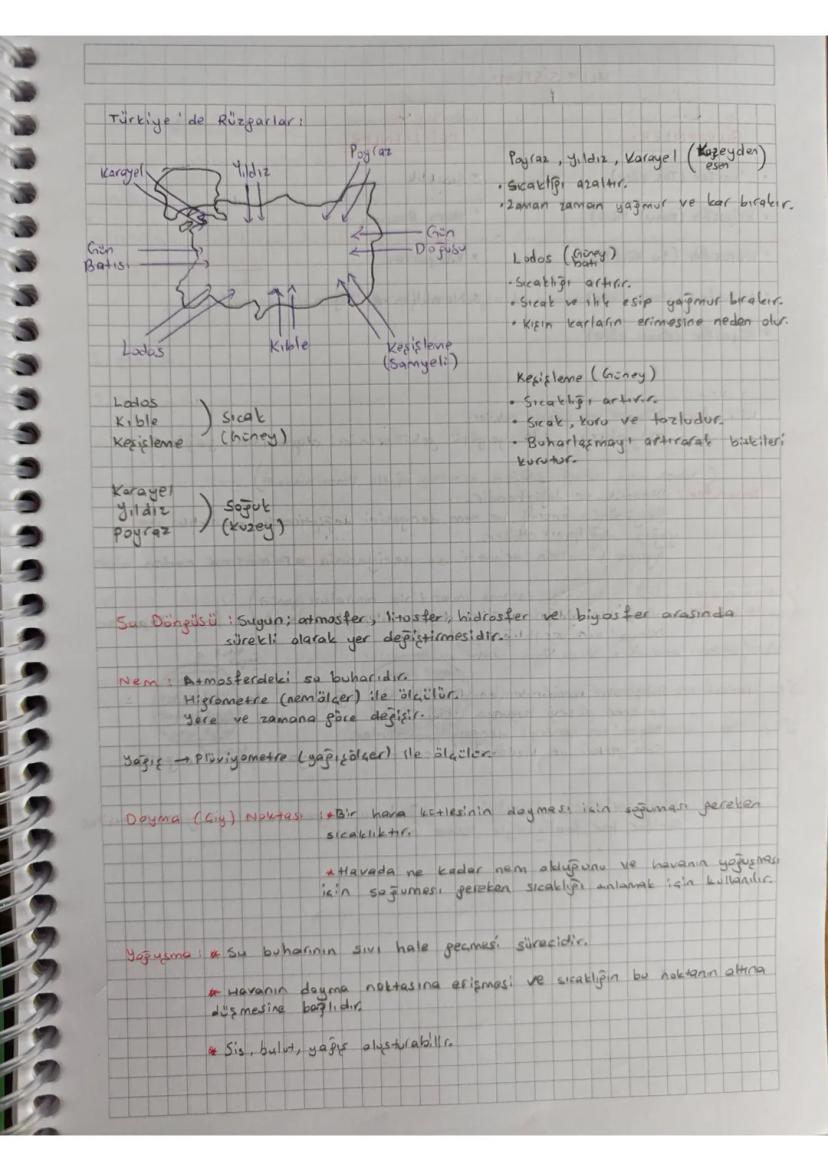 Türkiye'de Rüzgarlar:
Karayel
Yıldız
Poyraz
Gün
Batısı
Gün
Doğusu
Lodos
Kıble
Keşişleme
(Samyeli)
Poyraz, Yıldız, Karayel (Kuzeyden
esen)
• Sıcaklığı azaltır.
• Zaman zaman yağmur ve kar bırakır.
Lodos (Güney
batı)
• Sıcaklığı artırır.
• Sıcak ve ılık esip yağmur bırakır.
• Kışın karların erimesine neden olur.
Keşişleme (Güney)
• Sıcaklığı artırır.
• Sıcak, kuru ve tozludur.
• Buharlaşmayı artırarak bitkileri
kurutur.
Lodos
Kıble
Keşişleme
) Sıcak
(Güney)
Karayel
Yıldız
Poyraz
) Soğuk
(Kuzey)
Su Döngüsü : Suyun; atmosfer, litosfer, hidrosfer ve biyosfer arasında
sürekli olarak yer değiştirmesidir.
Nem : Atmosferdeki su buharıdır.
Higrometre (nemölçer) ile ölçülür.
Yere ve zamana göre değişir.
Yağış → Plüviyometre (yağışölçer) ile ölçülür.
Doyma (Çiy) Noktası : * Bir hava kütlesinin doyması için soğuması gereken
sıcaklıktır.
* Havada ne kadar nem olduğunu ve havanın yoğuşması
için soğuması gereken sıcaklığı anlamak için kullanılır.
Yoğuşma : * Su buharının sıvı hale geçmesi sürecidir.
* Havanın doyma noktasına erişmesi ve sıcaklığın bu noktanın altına
düşmesine bağlıdır.
* Sis, bulut, yağış oluşturabilir.